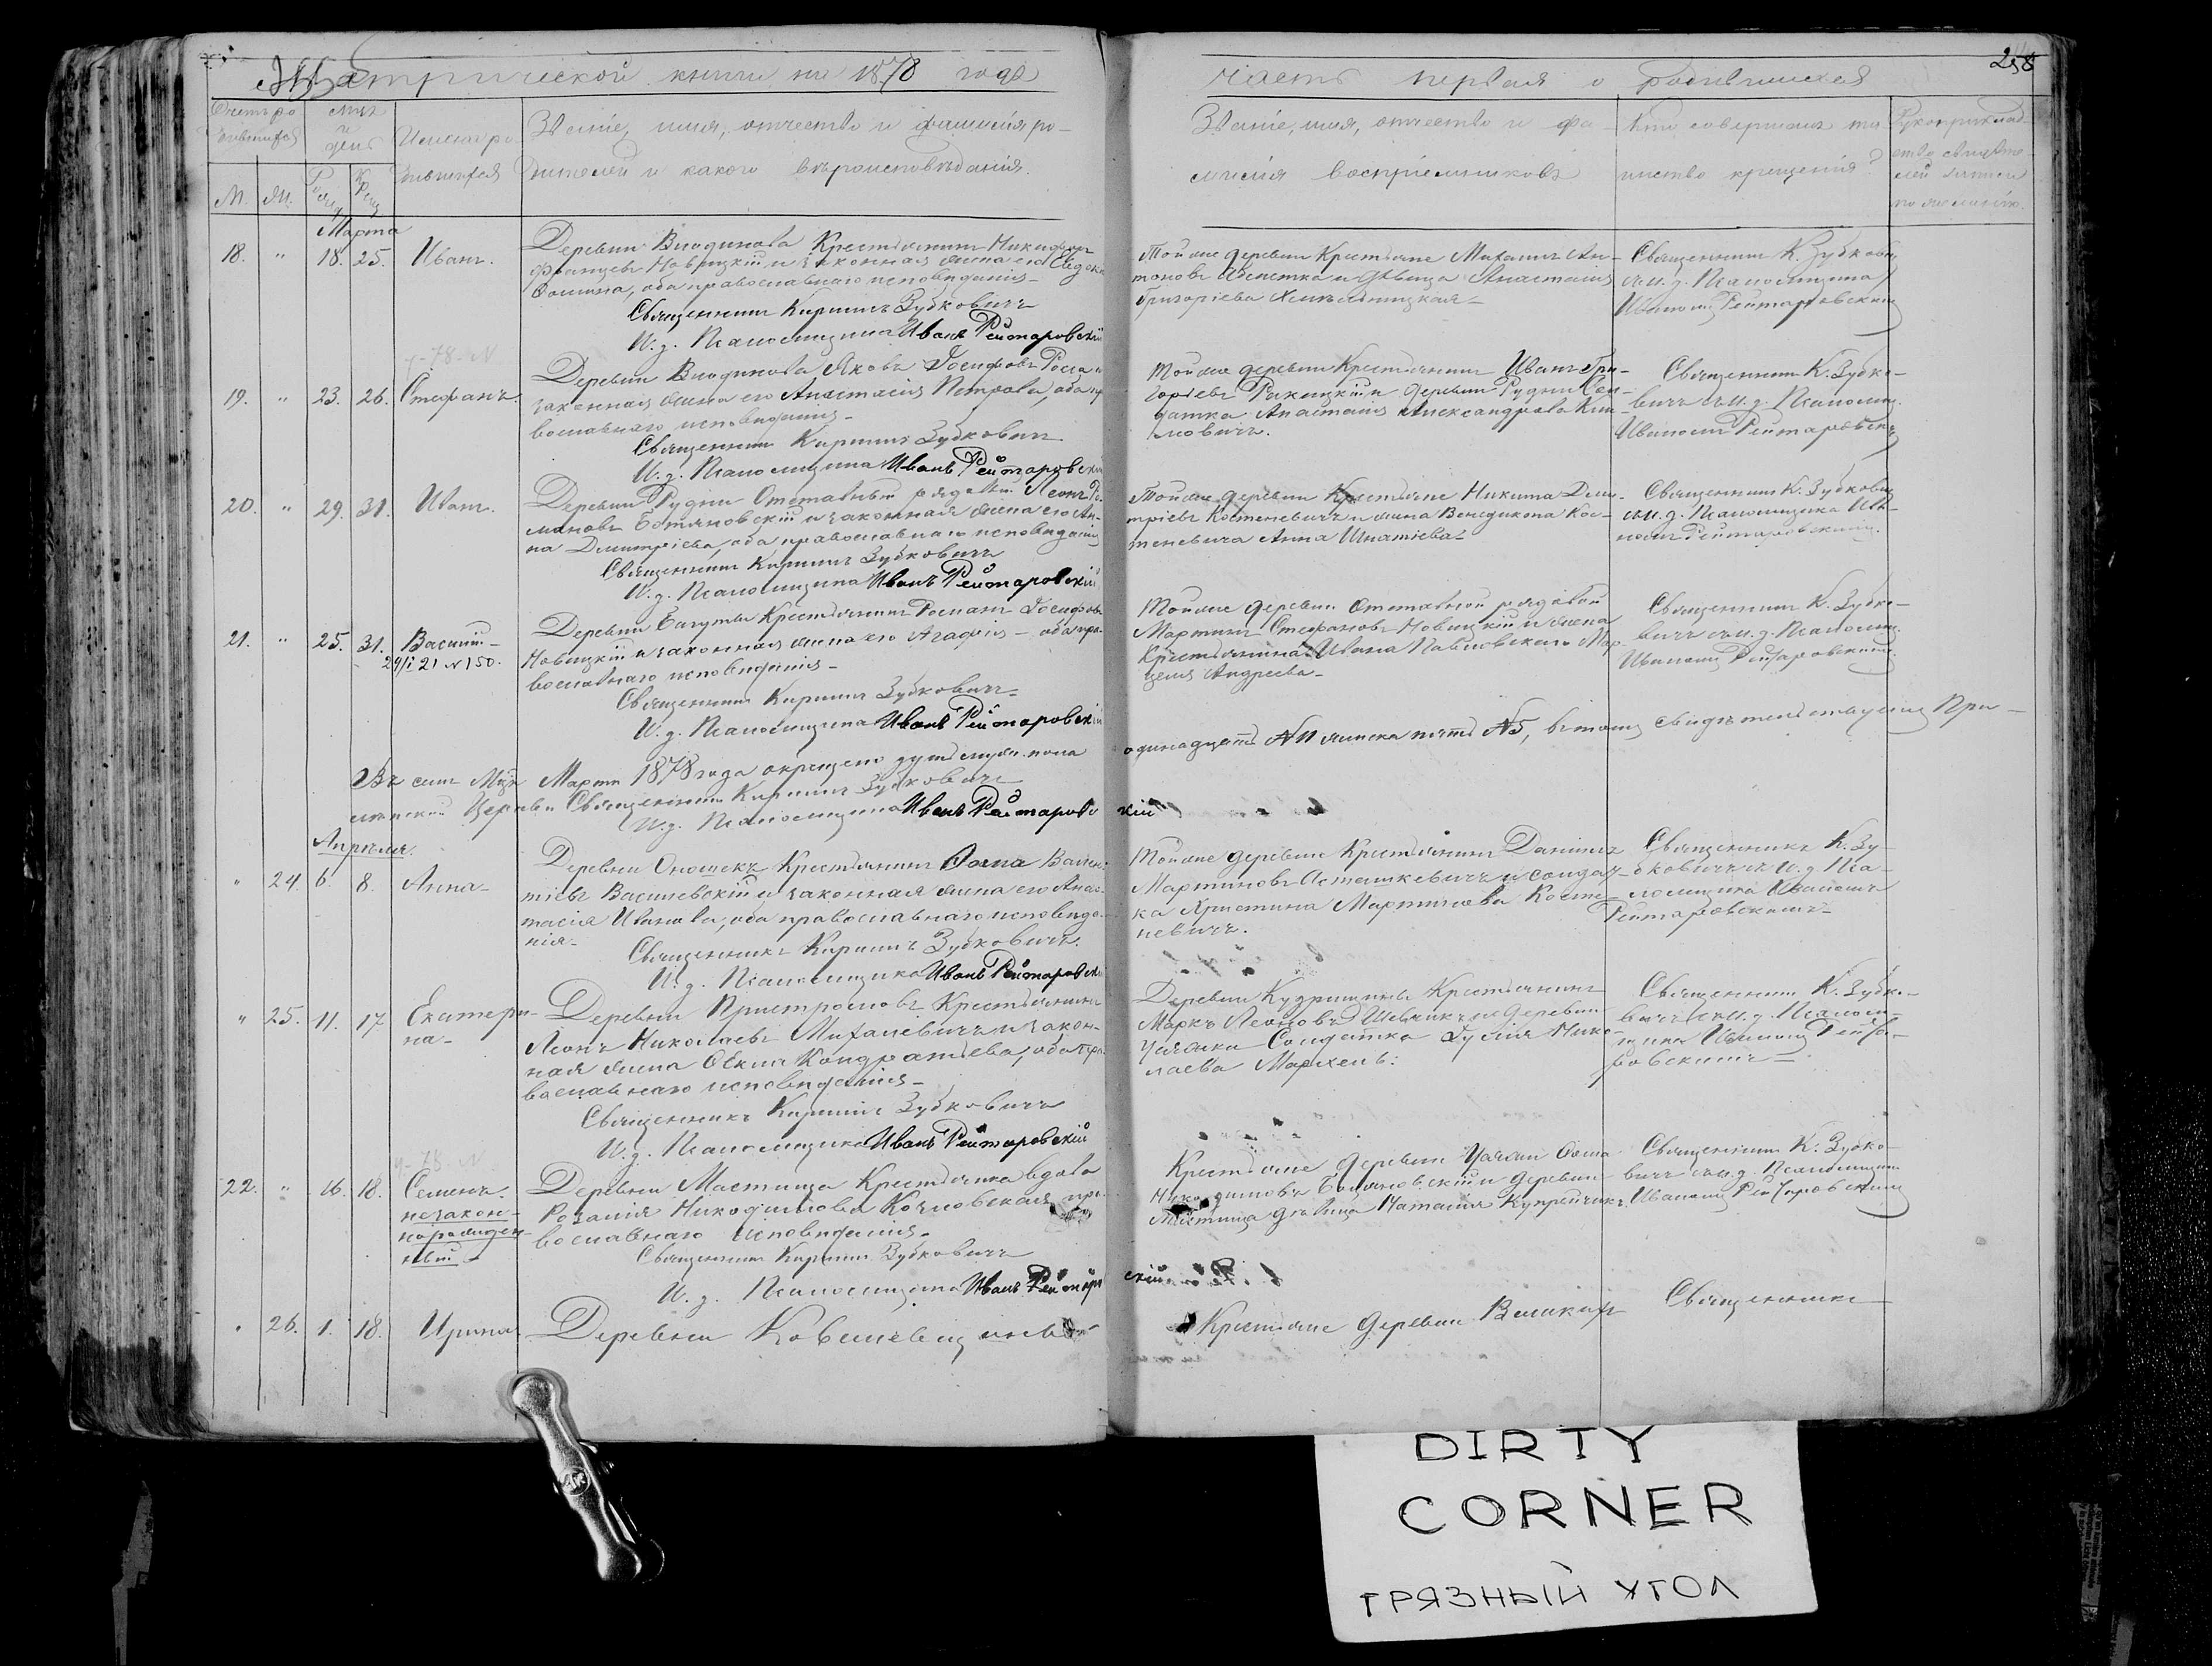 Метрической книги на 1878 годъ
часть первая о родившихся
258
Счетъ ро
дившихся
Мѣсяцъ
и
день
Имена ро
дившихся
Званіе, имя, отчество и фамилія ро-
дителей и какого вѣроисповѣданія.
М.
Ж.
Рожд.
Крещ.
Званіе, имя, отчество и фа-
милія воспріемниковъ
Кто совершалъ та
инство крещенія?
Рукоприклад
ство свидѣте
лей записи
по желанію.
Марта
18. " 18. 25. Иванъ.
Деревни Крестьянинъ Никифоръ
Францевъ Новицкій и законная жена его Евдокія
Ѳомина, оба православнаго исповѣданія –
Священникъ Кириллъ Зубковичъ
И. д. Псаломщика Иванъ Рейтаровскій
Той же деревни Крестьяне Михаилъ Ан-
тоновъ и дѣвица Анастасія
Григоріева Хмѣльницкая –
Священникъ К. Зубкович
съ и. д. Псаломщика
Иваномъ Рейтаровскимъ
19. " 23. 26. Стефанъ.
Деревни Яковъ Іосифовъ и
законная жена его Анастасія Петрова, оба пра
вославнаго исповѣданія –
Священникъ Кириллъ Зубковичъ
И. д. Псаломщика Иванъ Рейтаровскій
Той же деревни Крестьянинъ Иванъ Гри-
горіевъ Ракицкій и деревни Рудни Сол-
датка Анастасія Александрова Кли-
мовичъ.
Священникъ К. Зубко-
вичъ съ и. д. Псаломщ.
Иваномъ Рейтаровским
20. " 29. 31. Иванъ.
Деревни Рудни Отставный рядовый Леонъ Ро
мановъ Ботяновскій и законная жена его Ан-
на Дмитріева, оба православнаго исповѣданія
Священникъ Кириллъ Зубковичъ
И. д. Псаломщика Иванъ Рейтаровскій
Той же деревни Крестьяне Никита Дми-
тріевъ Костеневичъ и жена Венедикта Кос-
теневича Анна Игнатіева
Священникъ К. Зубкович
съ и. д. Псаломщика Ива-
номъ Рейтаровскимъ.
21. " 25. 31. Василій –
24/I 21 N 150.
Деревни Крестьянинъ Романъ Іосифовъ
Новицкій и законная жена его Агафія – оба пра-
вославнаго исповѣданія –
Священникъ Кириллъ Зубковичъ –
И. д. Псаломщика Иванъ Рейтаровскій
Той же деревни Отставной рядовой
Мартинъ Стефановъ Новицкій и жена
Крестьянина Ивана Павловскаго Мар-
целя Андреева –
Священникъ К. Зубко-
вичъ съ и. д. Псаломщ.
Иваномъ Рейтаровскимъ.
Въ семъ М-цѣ Мартѣ 1878 года окрещено душъ мужс. пола одинадцать N 11 женска пять N 5, въ томъ свидѣтельствуемъ При-
Церкви Священникъ Кириллъ Зубковичъ
И. д. Псаломщика Иванъ Рейтаровскій
Апрѣля.
" 24. 6. 8. Анна –
Деревни Оношекъ Крестьянинъ Ѳома
Василевскій и законная жена его Анас-
тасія Иванова, оба православнаго исповѣда-
нія –
Священникъ Кириллъ Зубковичъ.
И. д. Псаломщика Иванъ Рейтаровскій
Той же деревни Крестьянинъ Даніилъ
Мартиновъ Асташкевичъ и солдат-
ка Христина Мартинова Косте-
невичъ.
Священникъ К. Зу-
бковичъ съ и. д. Пса-
ломщика Иваномъ
Рейтаровскимъ –
" 25. 11. 17 Екатери-
на –
Деревни Пристромовъ Крестьянинъ
Леонъ Николаевъ Михалевичъ и закон-
ная жена Кондратьева, оба пра-
вославнаго исповѣданія –
Священникъ Кириллъ Зубковичъ
И. д. Псаломщика Иванъ Рейтаровскій
Деревни Крестьянинъ
Маркъ Леоновъ Шевчикъ и деревни
Солдатка Юлія Нико-
лаева
Священникъ К. Зубко-
вичъ съ и. д. Псалом-
щика Иваномъ Рейта-
ровскимъ –
22. " 16. 18. Семенъ.
незакон-
норожден-
ный –
Деревни Мастища Крестьянка вдова
Розалія Никодимова Козловская пра-
вославнаго исповѣданія.
Священникъ Кириллъ Зубковичъ
И. д. Псаломщика Иванъ Рейтаровскій
Крестьяне деревни Ѳома
Никодимовъ Ботяновскій и деревни
Мастища дѣвица Наталія Купрейчикъ.
Священникъ К. Зубко-
вичъ съ и. д. Псаломщика
Иваномъ Рейтаровскимъ
" 26. 1. 18. Ирина
Деревни
Крестьяне деревни Великихъ
Священникъ
DIRTY
CORNER
ГРЯЗНЫЙ УГОЛ